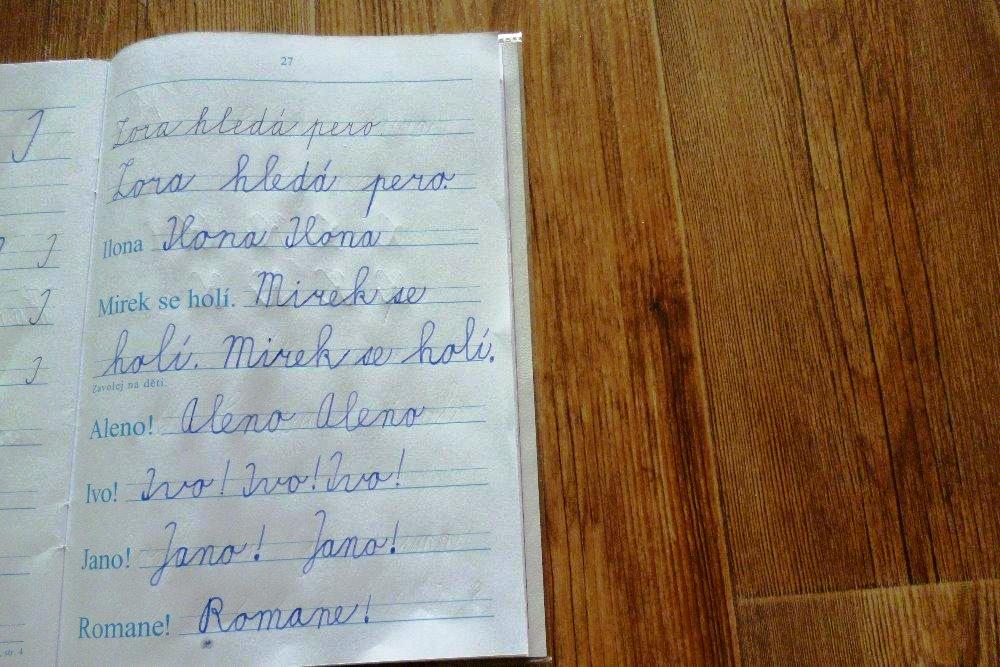 27
Zora hledá pero.
Zora hledá pero.
Ilona Ilona Ilona
Mirek se holí. Mirek se
holí. Mirek se holí.
Zavolej na děti.
Aleno! Aleno Aleno
Ivo! Ivo! Ivo! Ivo!
Jano! Jano! Jano!
Romane! Romane!
str. 4
J
J
J
J